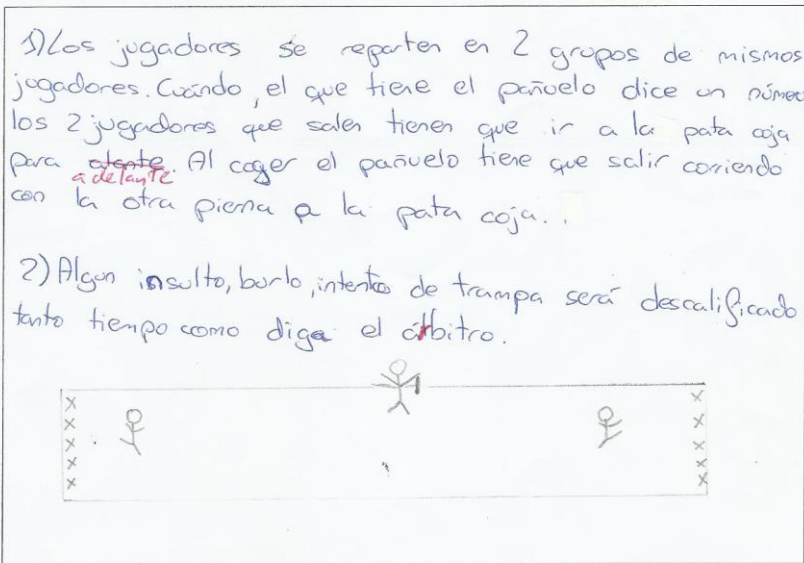 1) Los jugadores se reparten en 2 grupos de mismos
jugadores. Cuándo, el que tiene el pañuelo dice un número
los 2 jugadores que salen tienen que ir a la pata coja
para adelante. Al coger el pañuelo tiene que salir corriendo
con la otra pierna a la pata coja..
2) Algun insulto, burlo, intento de trampa será descalificado
tanto tiempo como diga el árbitro.